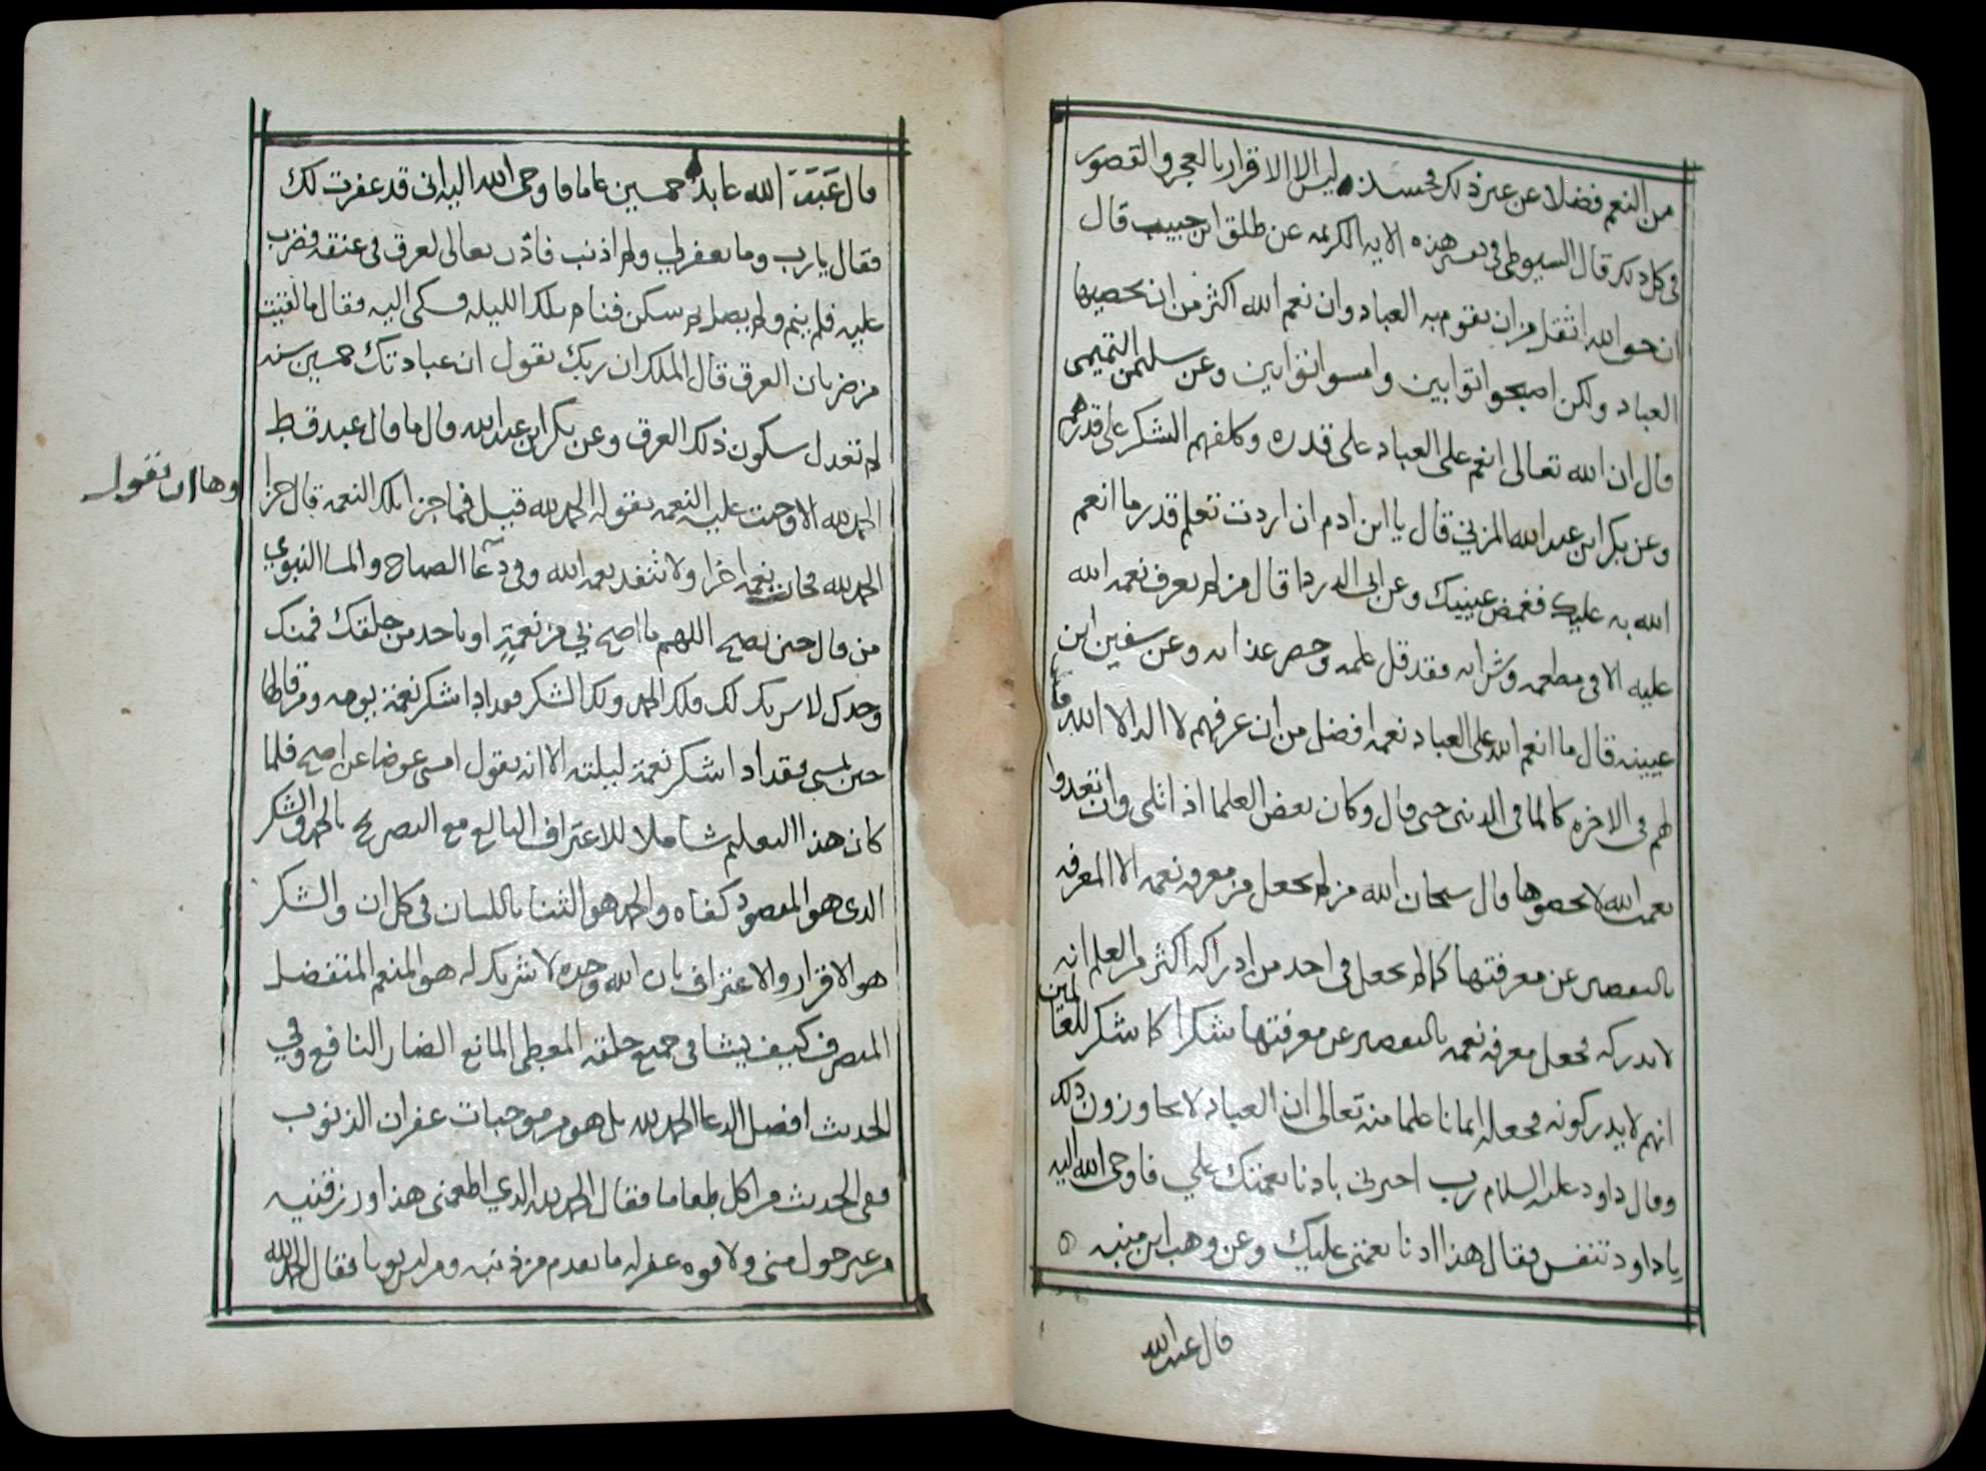 من النعم فضلا عن غير ذلك فحينئذ ليس الا الاقرار بالعجز والقصور
في كل ذلك قال السيوطي في تفسير هذه الايه الكريمه عن طلق ابن حبيب قال
ان حق الله اثقل من ان يقوم به العباد وان نعم الله اكثر من ان يحصيها
العباد ولكن اصبحوا توابين وامسوا توابين وعن سليمن التميمي
قال ان الله تعالى انعم على العباد على قدره وكلفهم الشكر على قدرهم
وعن بكر ابن عبد الله المزني قال يا ابن ادم ان اردت تعلم قدر ما انعم
الله به عليك فغمض عينيك وعن ابي الدردا قال من لم يعرف نعمه الله
عليه الا في مطعمه وشرابه فقد قل علمه وحضر عذابه وعن سفين ابن
عيينه قال ما انعم الله على العباد نعمه افضل من ان عرفهم لا اله الا الله
لهم في الاخره كالما في الدنيا حتى قال وكان بعض العلما اذا تلى وان تعدوا
نعمت الله لا تحصوها قال سبحان الله من لم يجعل من معرفه نعمه الا المعرفه
بالتقصير عن معرفتها كما لم يجعل في احد من ادراكه اكثر من العلم انه
لا يدركه فجعل معرفه نعمه بالتقصير عن معرفتها شكرا كما شكر للعالمين
انهم لا يدركونه فجعله ايمانا علما منه تعالى ان العباد لا يجاوزون ذلك
وقال داود عليه السلام رب اخبرني بادنا نعمتك علي فاوحى الله اليه
يا داود تنفس فقال هذا ادنا نعمتي عليك وعن وهب ابن منبه
قال عبد الله
قال عَبَدَ الله عابد خمسين عاما فاوحى الله اليه اني قد غفرت لك
فقال يا رب وما تغفر لي ولم اذنب فاذن تعالى لعرق في عنقه فضرب
عليه فلم ينم ولم يصل ثم سكن فنام تلك الليله فشكى اليه فقال ما لقيت
من ضربان العرق قال الملك ان ربك يقول ان عبادتك خمسين سنه
لم تعدل سكون ذلك العرق وعن بكر ابن عبد الله قال ما قال عبد قط
الحمد لله الا وجبت عليه النعمه بقوله الحمد لله قيل فما جزا تلك النعمه قال جزا
وها ان تقول
الحمد لله فجات نعمه اخرا ولا تنفد نعمه الله وفي دعا الصباح والمسا النبوي
من قال حين يصبح اللهم ما اصبح بي من نعمةٍ او باحد من خلقك فمنك
وحدك لا شريك لك فلك الحمد ولك الشكر فقد ادا شكر نعمة يومه ومن قالها
حين يمسي فقد ادا شكر نعمة ليلته الا انه يقول امسى عوضا عن اصبح فلما
كان هذا التعليم شاملا للاعتراف البالغ مع التصريح بالحمد والشكر
الذي هو المقصود كفاه والحمد هو الثنا باللسان في كل ان والشكر
هو الاقرار والاعتراف بان الله وحده لا شريك له هو المنعم المتفضل
المتصرف كيف يشا في جميع خلقه المعطي المانع الضار النافع وفي
الحديث افضل الدعا الحمد لله بل هو من موجبات غفران الذنوب
ففي الحديث من اكل طعاما فقال الحمد لله الذي اطعمني هذا ورزقنيه
من غير حول مني ولا قوه غفر له ما تقدم من ذنبه ومن لبس ثوبا فقال الحمد لله